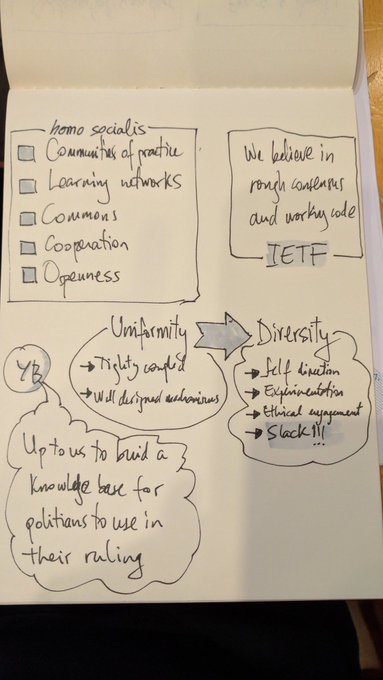 homo socialis
Communities of practice
Learning networks
Commons
Cooperation
Openness
We believe in
rough consensus
and working code
IETF
Uniformity
→ Tighty coupled
→ Well designed mechanisms
Diversity
→ Self direction
→ Experimentation
→ Ethical engagement
→ Slack!!!
YB
Up to us to build a
Knowledge base for
politians to use in
their ruling